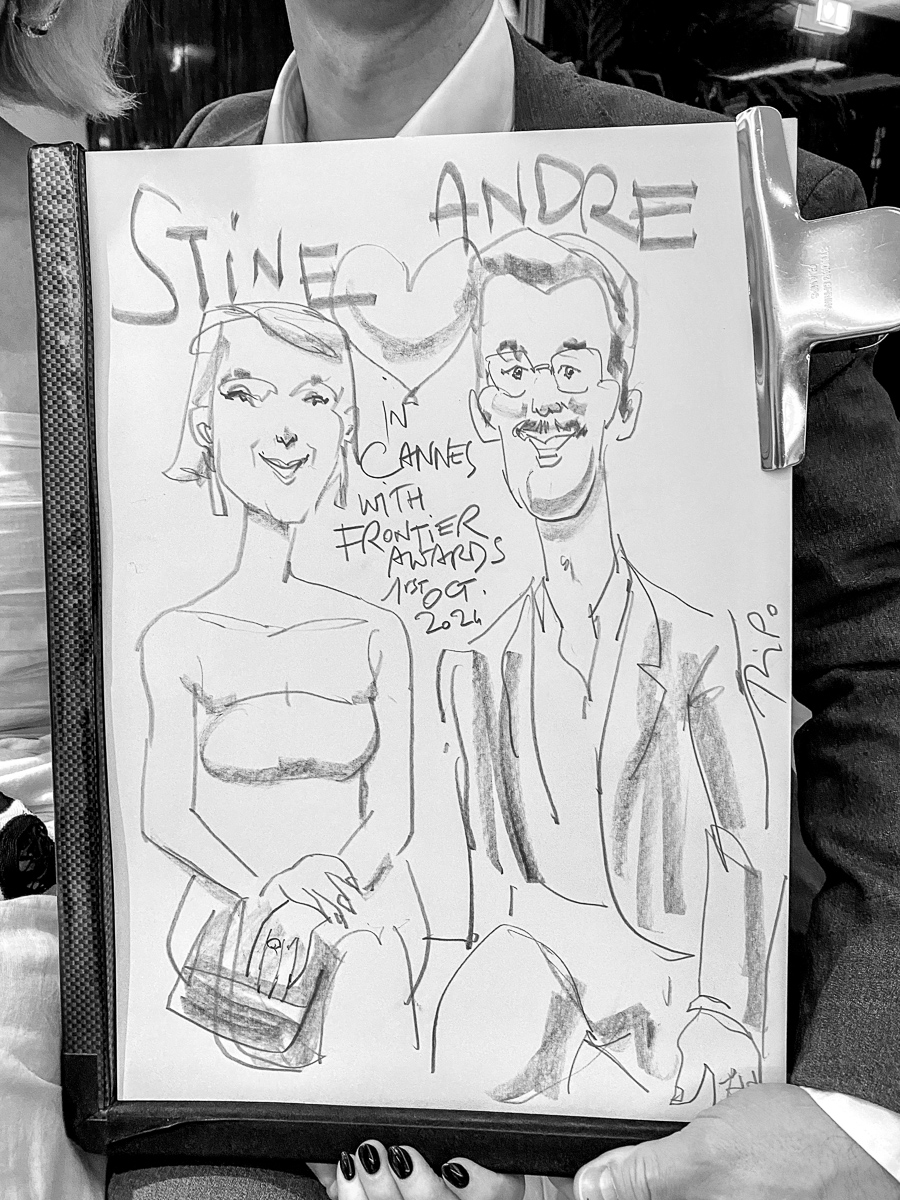 STINE
ANDRE
IN
CANNES
WITH
FRONTIER
AWARDS
1RST OCT.
2024
RiPo